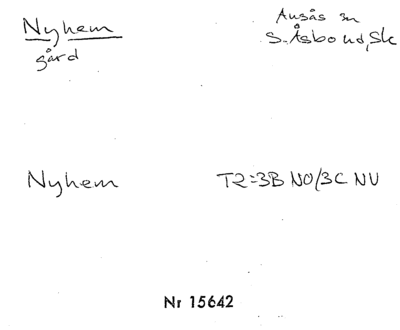 Nyhem
gård
Ausås sn
S. Åsbo hd, Sk
Nyhem
T2=3B NO/3C NV
Nr 15642